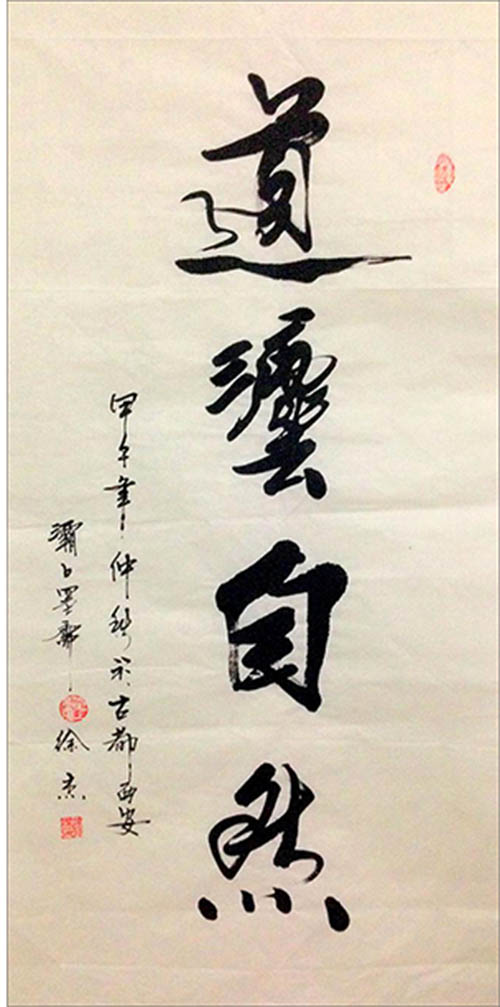 道灋自然
甲午年仲秋於古都西安
灞上墨齋
徐杰